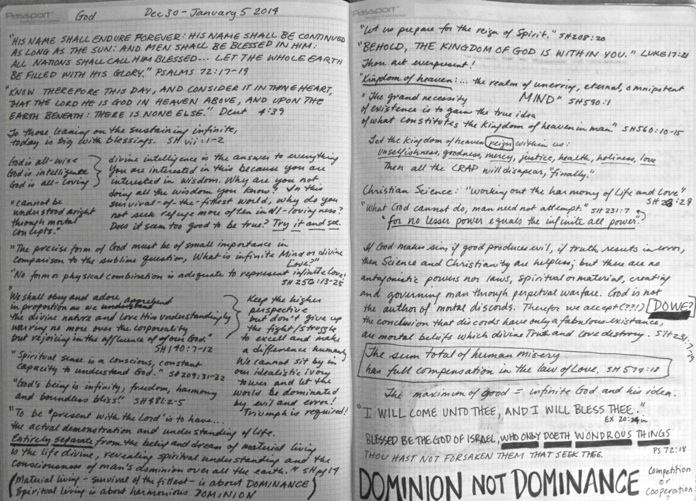 Passport
God Dec 30 - January 5 2014
"HIS NAME SHALL ENDURE FOREVER: HIS NAME SHALL BE CONTINUED
AS LONG AS THE SUN: AND MEN SHALL BE BLESSED IN HIM:
ALL NATIONS SHALL CALL HIM BLESSED... LET THE WHOLE EARTH
BE FILLED WITH HIS GLORY." PSALMS 72:17-19
"KNOW THEREFORE THIS DAY, AND CONSIDER IT IN THINE HEART,
THAT THE LORD HE IS GOD IN HEAVEN ABOVE, AND UPON THE
EARTH BENEATH: THERE IS NONE ELSE." Deut 4:39
To those leaning on the sustaining infinite,
today is big with blessings. SH vii:1-2
God is all-wise
God is intelligence
God is all-loving
divine intelligence is the answer to everything
You are interested in this because you are
interested in Wisdom. Why are you not
doing all the wisdom you know? In this
survival-of-the-fittest world, why do you
not seek refuge more often in all-loving ness?
Does it sam too good to be true? Try it and see.
"cannot be
understood aright
through mortal
concepts."
"The precise form of God must be of small importance in
comparison to the sublime question, What is infinite Mind or divine
Love?"
"No form or physical combination is adequate to represent infinite Love."
SH 256:13-25
"We shall obey and adore
in proportion as we understand
the divine nature and love Him understandingly
warring no more over the corporeality
but rejoicing in the affluence of our God."
SH 140:7-12
Keep the higher
perspective
but don't give up
the fight/stress
to excel and make
a difference humanly
We cannot sit by in
our idealistic ivory
tower and let the
world be dominated
by evil and error!
Triumph is required!
"Spiritual sense is a conscious, constant
capacity to understand God." SH 209:31-32
"God's being is infinity, freedom, harmony
and boundless bliss". SH 481:2-5
"To be "present with the Lord" is to have...
the actual demonstration and understanding of life.
Entirely separate from the belief and dream of material living
is the life divine, revealing spiritual understanding and the
consciousness of man's dominion over all the earth." SH p14
(Material living - survival of the fittest - is about DOMINANCE)
Spiritual living is about harmonious DOMINION
Passport
"Let us prepare for the reign of Spirit." SH 208:20
"BEHOLD, THE KINGDOM OF GOD IS WITHIN YOU." LUKE 17:21
Thou art everpresent!
"Kingdom of heaven:... the realm of unerring, eternal, omnipotent
MIND" SH 590:1
"The grand necessity
of existence is to gain the true idea
of what constitutes the kingdom of heaven in man" SH 560:10-15
Let the Kingdom of heaven reign within us:
unselfishness, goodness, mercy, justice, health, holiness, love
Then all the CRAP will disapear, "finally."
Christian Science: "working out the harmony of Life and Love"
:29
"What God cannot do, man need not attempt." SH 231:7
"for no lesser power equals the infinite all power."
If God makes sin, if good produces evil, if truth results in error,
then Science and Christianity are helpless; but there are no
antagonistic powers nor laws, spiritual or material, creating
and governing man through perpetual warfare. God is not
the author of mortal discords. Therefor we accept (???) DO WE?
the conclusion that discords have only a fabulous existence,
are mortal beliefs which divine Truth and Love destroy. SH 231
The sum total of human misery
has full compensation in the law of Love. SH 574:18
The maximum of Good = infinite God and his idea.
"I WILL COME UNTO THEE, AND I WILL BLESS THEE."
EX 20:24
BLESSED BE THE GOD OF ISRAEL, WHO ONLY DOETH WONDROUS THINGS
PS 72:18
THOU HAST NOT FORSAKEN THEM THAT SEEK THEE.
DOMINION NOT DOMINANCE
Competition
or
Cooperation
?